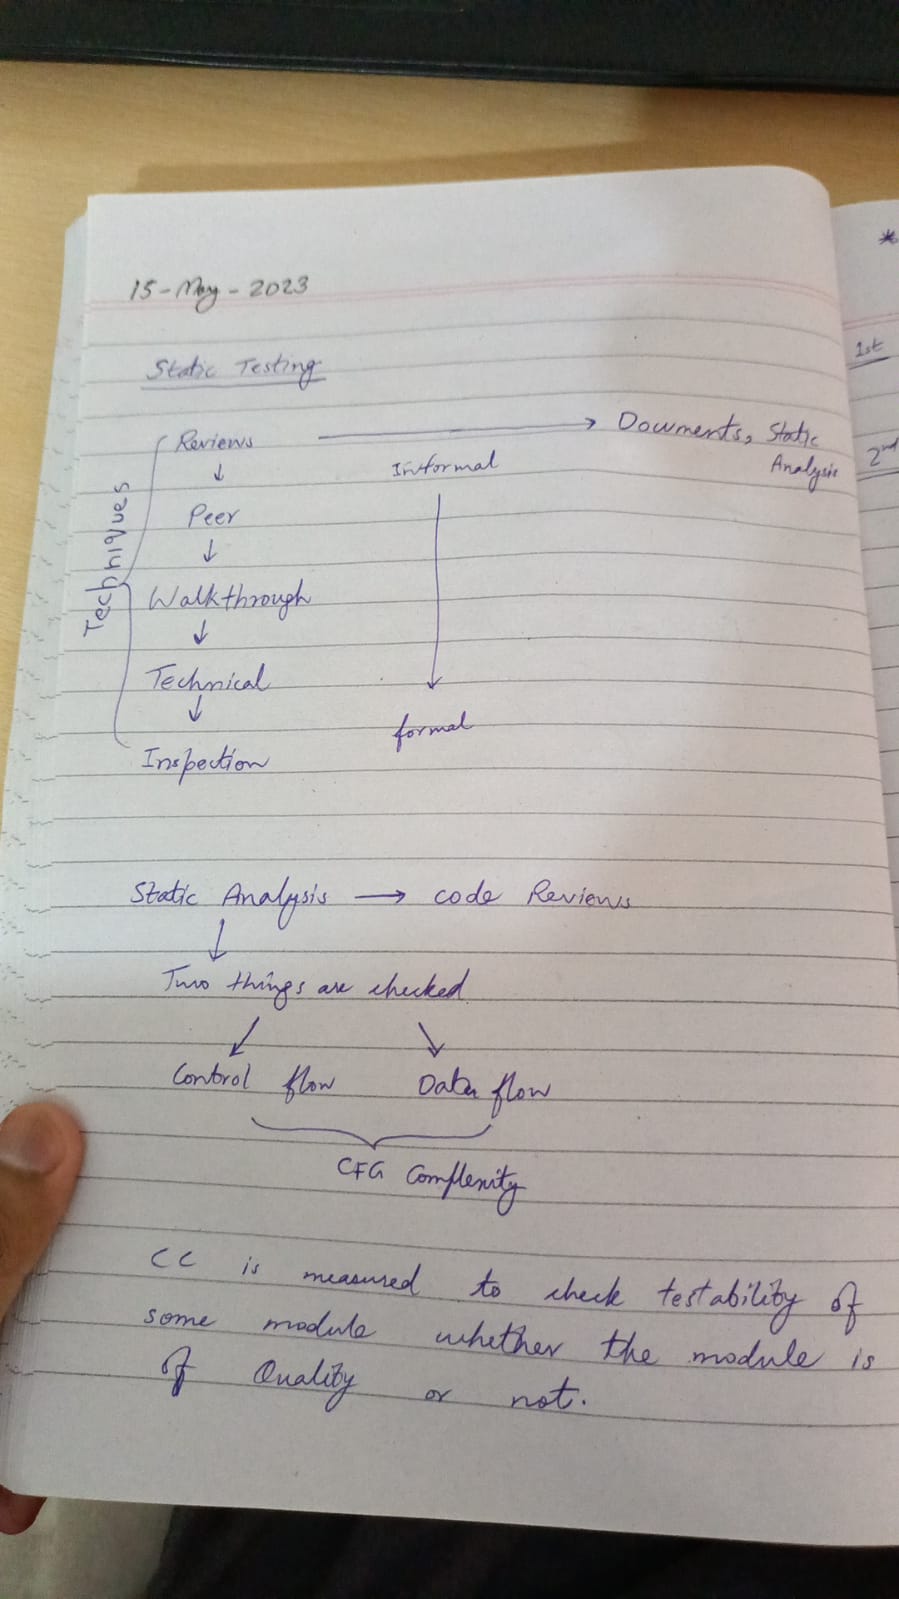 15-May-2023
Static Testing
Techniques
Reviews → Documents, Static
Analysis
↓ Informal
Peer
↓
Walkthrough
↓
Technical
↓ formal
Inspection
Static Analysis → code Reviews
↓
Two things are checked
Control flow Data flow
CFG Complexity
CC is measured to check testability of
some module whether the module is
of Quality or not.
*
1st
2nd